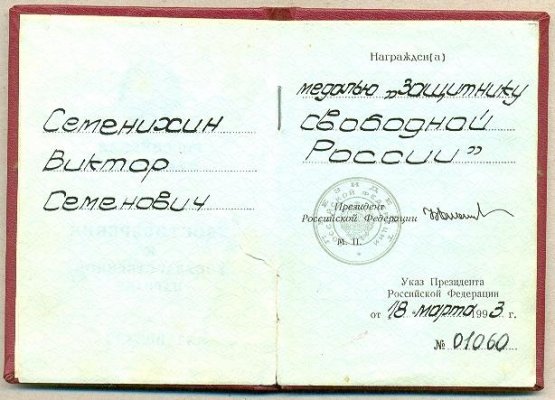 Семенихин
Виктор
Семенович
Награжден(а)
медалью „Защитнику
свободной
России”
Президент
Российской Федерации
М. П.
Указ Президента
Российской Федерации
от 18 марта 1993 г.
№ 01060